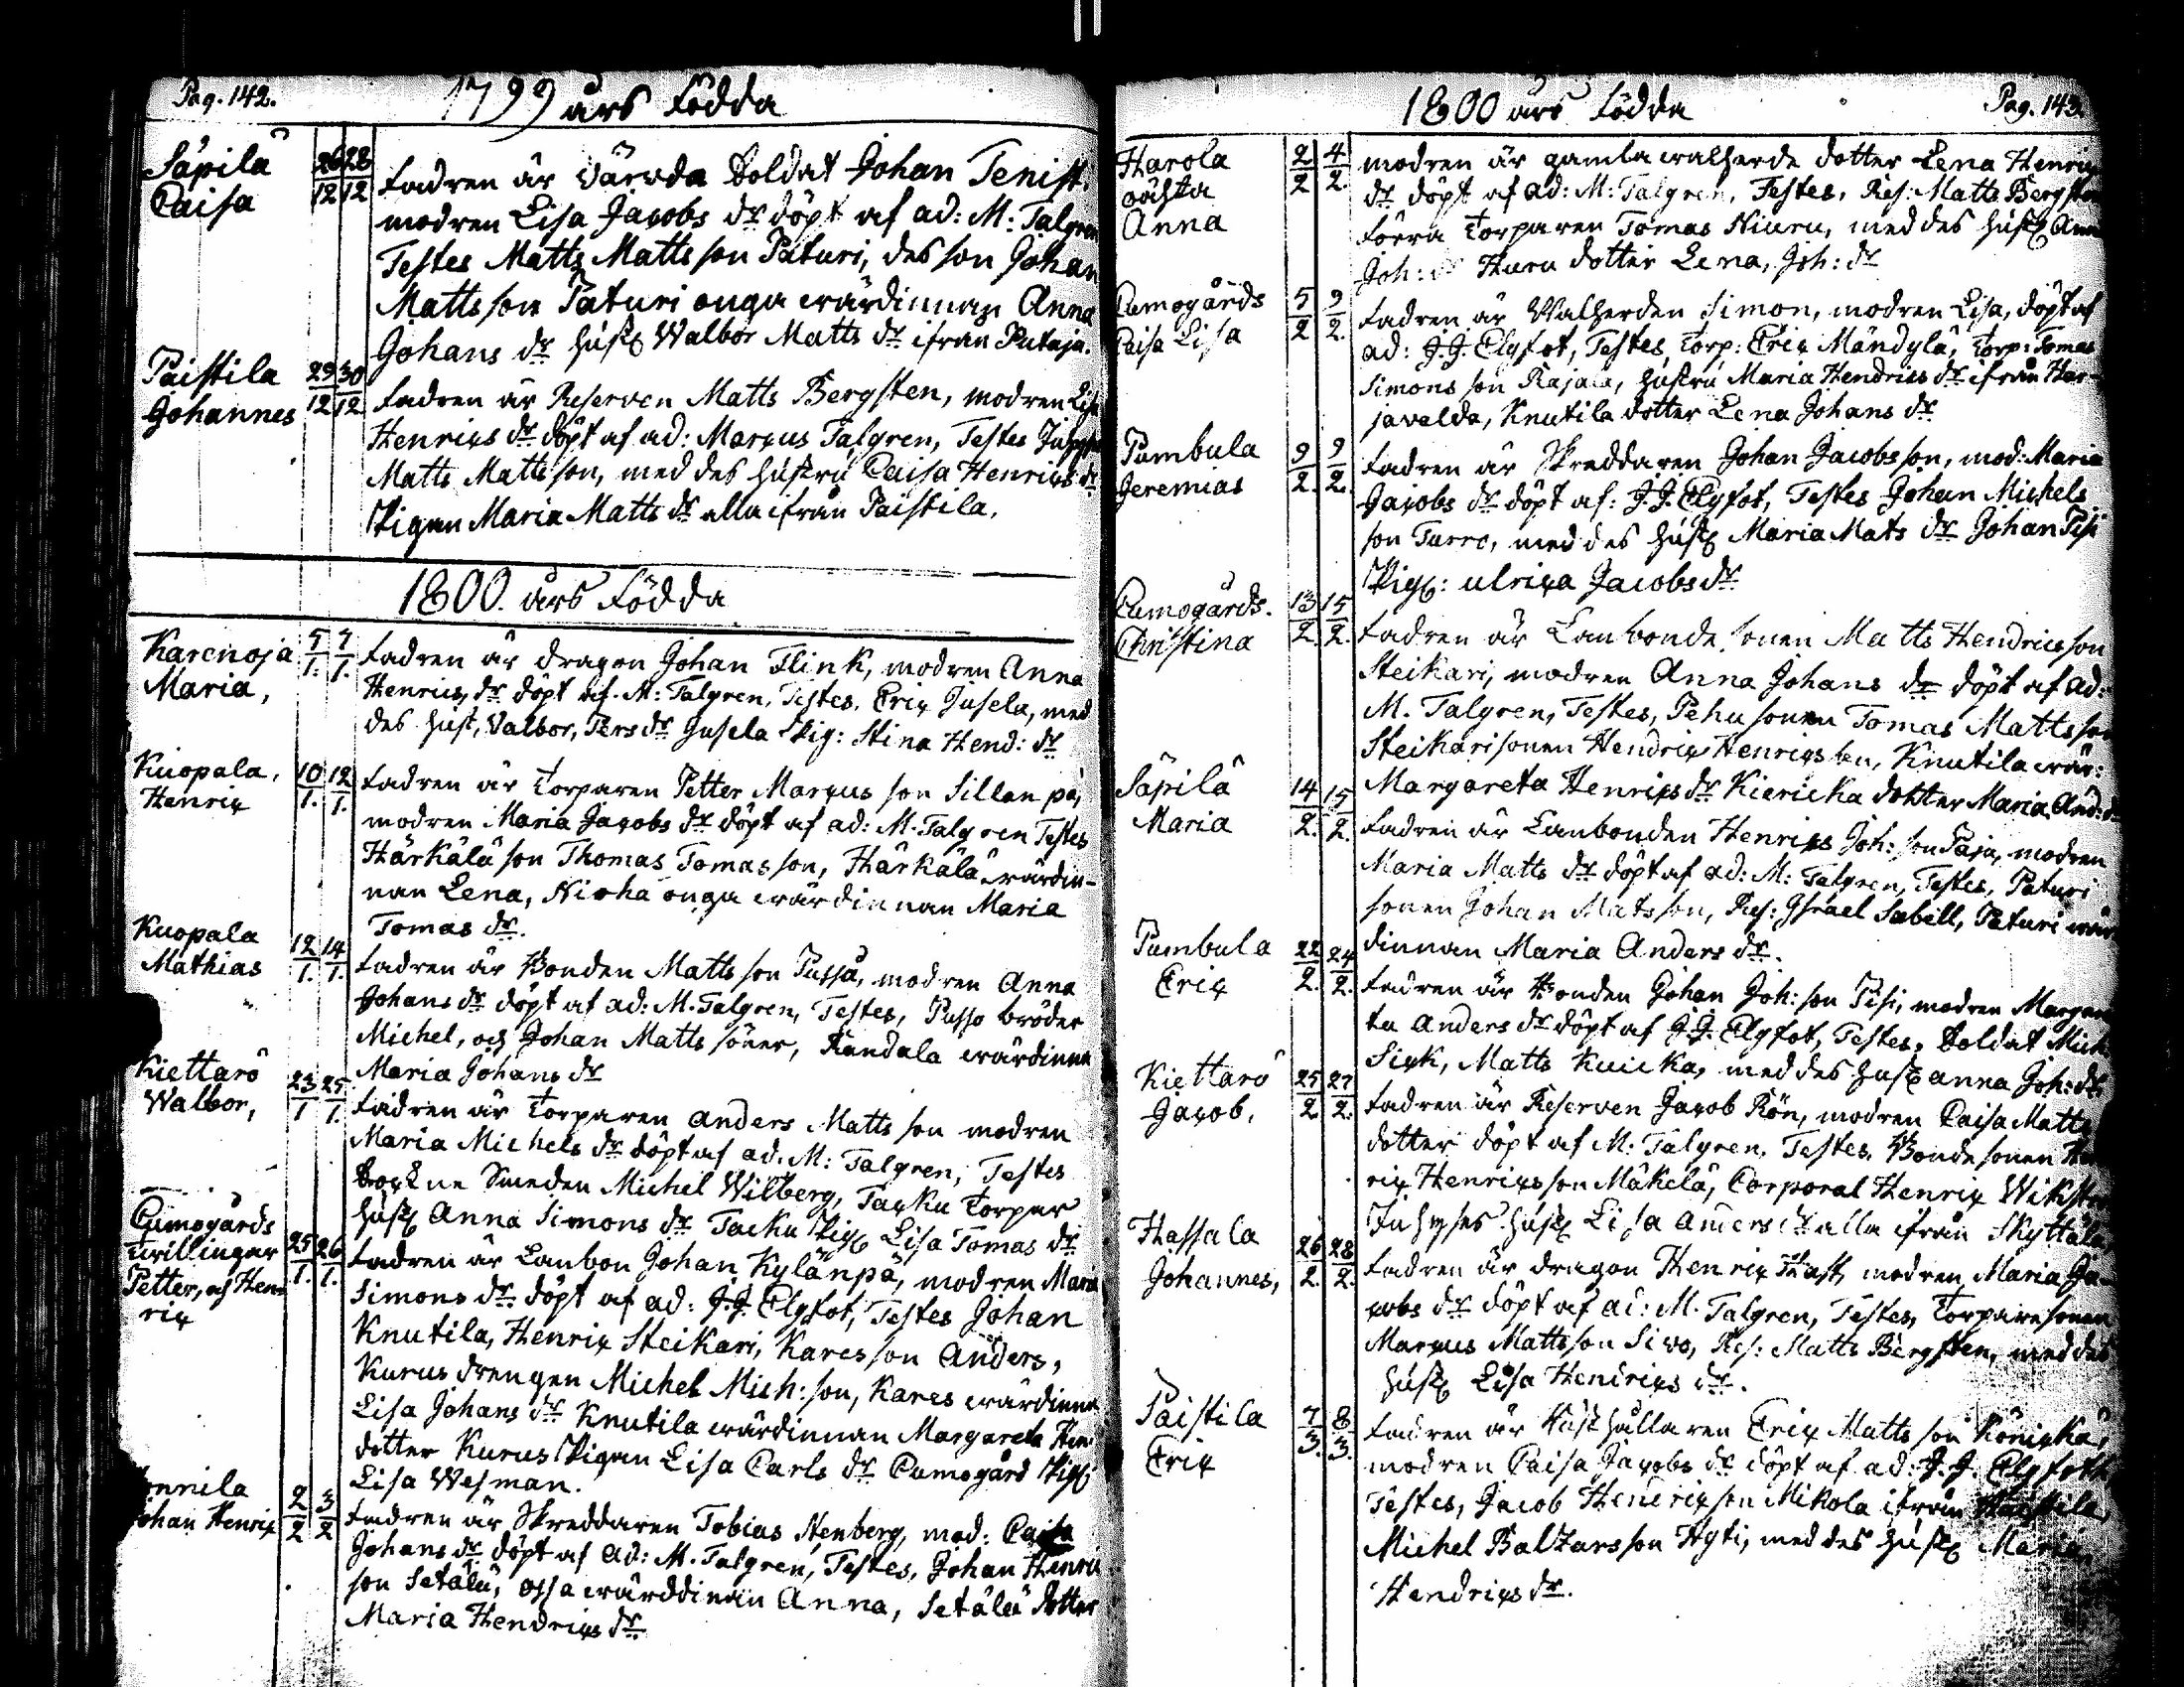 Pag. 142.
1799 års Födda
Säpilä
Caisa
26 28
12 12
Fadren är Värvda Soldat Johan Tenist.
modren Lisa Jacobs dr döpt af ad: M: Talgren
Testes Matts Matts son Paturi, des son Johan
Matts son Paturi onga wärdinnan Anna
Johans dr hust Walbor Matts dr ifrån Putaja.
Paistila
Johannes
29 30
12 12
Fadren är Reserven Matts Bergsten, modren Lisa
Henrics dr döpt af ad: Marcus Talgren, Testes
Matts Matts son, med des hustru Caisa Henrics dr
Pigan Maria Matts dr alla ifrån Päistila.
1800. års Födda
Karenoja
Maria,
5 7
1. 1.
Fadren är dragon Johan Flink, modren Anna
Henrics dr döpt af. M: Talgren, Testes. Eric Jusela, med
des hust, Valbor, Pers dr Jusela Pig: Stina Hend: dr
Kuopala,
Henric
10 12
1. 1.
Fadren är Torparen Petter Marcus son Sillan pä,
modren Maria Jacobs dr döpt af ad: M. Talgren Testes
Härkälä son Thomas Tomas son, Härkälä wärdin-
nan Lena, Nioha onga wärdinnan Maria
Tomas dr.
Kuopala
Mathias
12 14
1. 1.
Fadren är Bonden Matts son Pussa, modren Anna
Johans dr döpt af ad: M. Talgren, Testes, Pusso bröder
Michel, och Johan Matts söner, Randala wärdinna
Maria Johans dr
Kiettarö
Walbor,
23 25
1 1.
Fadren är Torparen Anders Matts son modren
Maria Michels dr döpt af ad. M: Talgren, Testes
Sockne Smeden Michel Wilberg, Tacku Torpar
hust Anna Simons dr Tacku Pig Lisa Tomas dr
Cumogårds
Twillingar
Petter, och Hen
ric
25 26
1. 1.
Fadren är Lanbon Johan Kylänpä, modren Maria
Simons dr. döpt af ad: J.J. Elgfot, Testes Johan
Knutila, Henric Steikari, Kares son Anders,
Kurus drengen Michel Mich: son, Kares wärdinna
Lisa Johans dr Knutila wärdinnan Margareta Hen:
dotter Kurus Pigan Lisa Carls dr Cumogård Pig
Lisa Wesman.
Johan Henric
2 3
2 2
Fadren är Skreddaren Tobias Nenberg, mod: Caisa
Johans dr döpt af ad: M. Talgren, Testes, Johan Henric
son Setälä, Ossa wärddinan Anna, Setälä dotter
Maria Hendrics dr
1800 års Födda
Pag. 143.
Harola
Anna
2 4
2 2.
modren är gamla walherde dotter Lena Henrics
dr döpt af ad: M: Talgren, Testes, Res: Matts Bergsten
Förra Torparen Tomas Niuru, med des hust Anna
Joh: dr Huru dotter Lena, Joh: dr
Cumogårds
Caisa Lisa
5 9
2 2.
Fadren är Walherden Simon, modren Lisa, döpt af
ad: J.J. Elgfot, Testes, Torp: Eric Mändylä, Torp: Tomas
Simons son Rajala, hustru Maria Hendrics dr ifrån Har-
javalda, Knutila dotter Lena Johans dr
Pumbula
Jeremias
9 9
2. 2.
Fadren är Skreddaren Johan Jacobs son, mod: Maria
Jacobs dr döpt af: J.J. Elgfot, Testes Johan Michels
son Turro, med des hust Maria Mats dr Johan Pisi
Pig: Ulrica Jacobs dr
Cumogårds.
Christina
13 15
2. 2.
Fadren är Lanbonde sonen Matts Hendrics son
Steikari, modren Anna Johans dr döpt af ad:
M. Talgren, Testes, Pehu sonen Tomas Matts son
Steikari sonen Hendric Henrics son, Knutila wär:
Margareta Henrics dr Kiericka dotter Maria And: dr
Säpilä
Maria
14 15
2. 2.
Fadren är Lanbonden Henrics Joh: son Paja, modren
Maria Matts dr döpt af ad: M: Talgren, Testes, Paturi
sonen Johan Mats son, Res: Israel Sabell, Paturi wär
dinnan Maria Anders dr.
Pumbula
Eric
22 24
2. 2.
Fadren är Bonden Johan Joh: son Pisi, modren Margare
ta Anders dr döpt af J.J. Elgfot, Testes, Soldat Mich
Sick, Matts Kuicka, med des hust Anna Joh: dr
Kiettarö
Jacob,
25 27
2 2.
Fadren är Reserven Jacob Rön, modren Caisa Matts
dotter döpt af M: Talgren, Testes, Bonde sonen Hen
ric Henrics son Mäkelä, Corporal Henric Wikster
Inhyses hust Lisa Anders dr alla ifrån Skyttälä
Hassala
Johannes,
26 28
2. 2.
Fadren är dragon Henric Hast, modren Maria Ja-
cobs dr döpt af ad: M. Talgren, Testes, Torpare sonen
Marcus Matts son Sivo, Res: Matts Bergsten, med des
hust Lisa Hendrics dr.
Paistila
Eric
7 8
3. 3.
Fadren är Hushållaren Eric Matts son Könickä,
modren Caisa Jacobs dr döpt af ad: J.J. Elgfott
Testes, Jacob Hendric son Mikola ifrån
Michel Baltzars son Hyti, med des hust Maria
Hendrics dr.